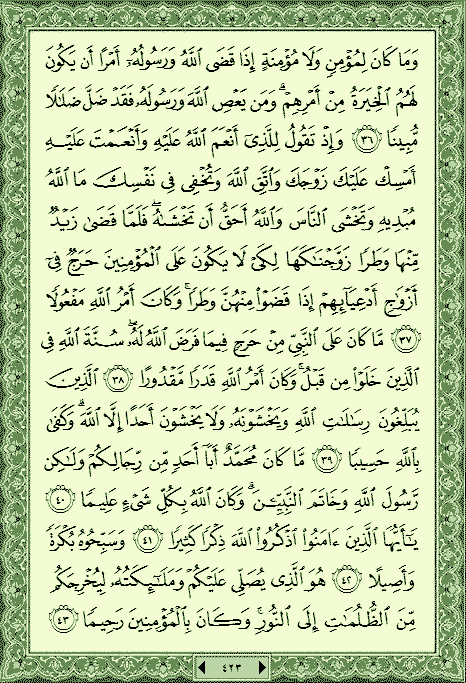 وَمَا كَانَ لِمُؤْمِنٍ وَلَا مُؤْمِنَةٍ إِذَا قَضَى ٱللَّهُ وَرَسُولُهُۥٓ أَمْرًا أَن يَكُونَ
لَهُمُ ٱلْخِيَرَةُ مِنْ أَمْرِهِمْ ۗ وَمَن يَعْصِ ٱللَّهَ وَرَسُولَهُۥ فَقَدْ ضَلَّ ضَلَـٰلًا
مُّبِينًا ٣٦ وَإِذْ تَقُولُ لِلَّذِىٓ أَنْعَمَ ٱللَّهُ عَلَيْهِ وَأَنْعَمْتَ عَلَيْهِ
أَمْسِكْ عَلَيْكَ زَوْجَكَ وَٱتَّقِ ٱللَّهَ وَتُخْفِى فِى نَفْسِكَ مَا ٱللَّهُ
مُبْدِيهِ وَتَخْشَى ٱلنَّاسَ وَٱللَّهُ أَحَقُّ أَن تَخْشَىٰهُ ۖ فَلَمَّا قَضَىٰ زَيْدٌ
مِّنْهَا وَطَرًا زَوَّجْنَـٰكَهَا لِكَىْ لَا يَكُونَ عَلَى ٱلْمُؤْمِنِينَ حَرَجٌ فِىٓ
أَزْوَٰجِ أَدْعِيَآئِهِمْ إِذَا قَضَوْا۟ مِنْهُنَّ وَطَرًا ۚ وَكَانَ أَمْرُ ٱللَّهِ مَفْعُولًا
٣٧ مَّا كَانَ عَلَى ٱلنَّبِىِّ مِنْ حَرَجٍ فِيمَا فَرَضَ ٱللَّهُ لَهُۥ ۖ سُنَّةَ ٱللَّهِ فِى
ٱلَّذِينَ خَلَوْا۟ مِن قَبْلُ ۚ وَكَانَ أَمْرُ ٱللَّهِ قَدَرًا مَّقْدُورًا ٣٨ ٱلَّذِينَ
يُبَلِّغُونَ رِسَـٰلَـٰتِ ٱللَّهِ وَيَخْشَوْنَهُۥ وَلَا يَخْشَوْنَ أَحَدًا إِلَّا ٱللَّهَ ۗ وَكَفَىٰ
بِٱللَّهِ حَسِيبًا ٣٩ مَّا كَانَ مُحَمَّدٌ أَبَآ أَحَدٍ مِّن رِّجَالِكُمْ وَلَـٰكِن
رَّسُولَ ٱللَّهِ وَخَاتَمَ ٱلنَّبِيِّـۧنَ ۗ وَكَانَ ٱللَّهُ بِكُلِّ شَىْءٍ عَلِيمًا ٤٠
يَـٰٓأَيُّهَا ٱلَّذِينَ ءَامَنُوا۟ ٱذْكُرُوا۟ ٱللَّهَ ذِكْرًا كَثِيرًا ٤١ وَسَبِّحُوهُ بُكْرَةً
وَأَصِيلًا ٤٢ هُوَ ٱلَّذِى يُصَلِّى عَلَيْكُمْ وَمَلَـٰٓئِكَتُهُۥ لِيُخْرِجَكُم
مِّنَ ٱلظُّلُمَـٰتِ إِلَى ٱلنُّورِ ۚ وَكَانَ بِٱلْمُؤْمِنِينَ رَحِيمًا ٤٣
٤٢٣